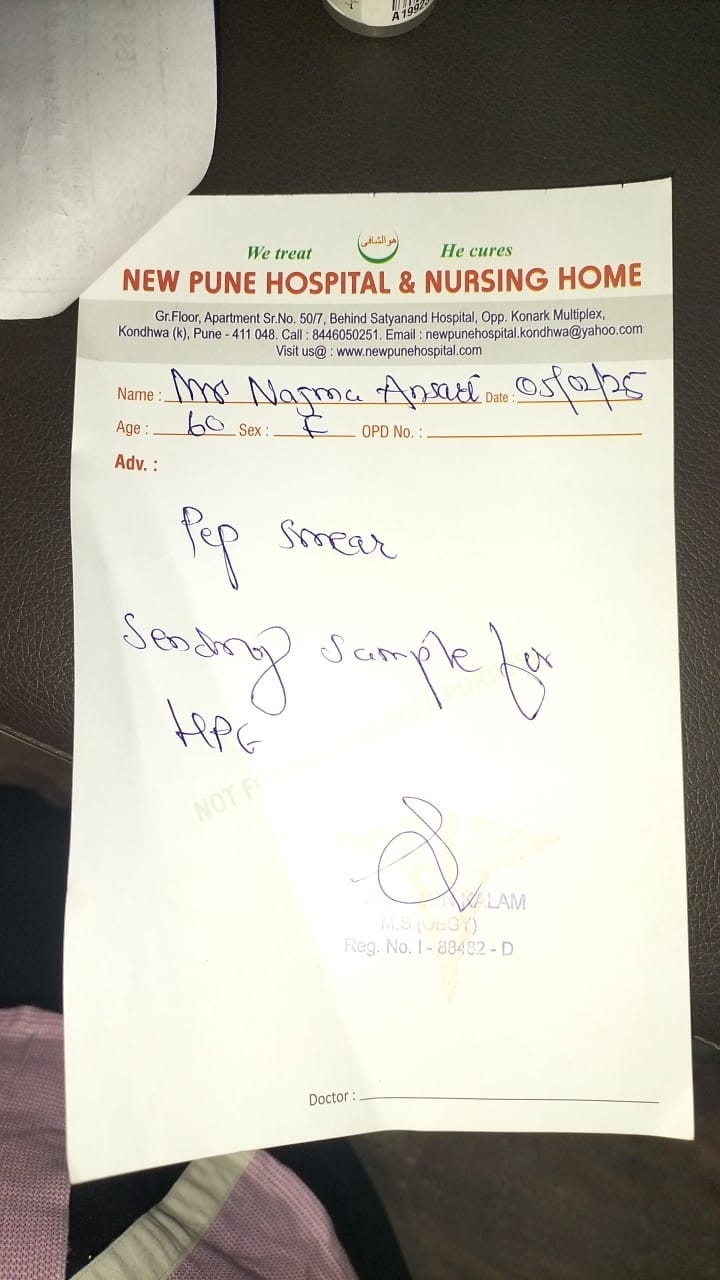 A1992
We treat هو الشافي He cures
NEW PUNE HOSPITAL & NURSING HOME
Gr.Floor, Apartment Sr.No. 50/7, Behind Satyanand Hospital, Opp. Konark Multiplex,
Kondhwa (k), Pune - 411 048. Call : 8446050251. Email : newpunehospital.kondhwa@yahoo.com
Visit us@ : www.newpunehospital.com
Name : Mrs Nazma Ansari Date : 05/02/25
Age : 60 Sex : F OPD No. :
Adv. :
Pep smear
Sending sample for
HPE
NOT FOR
KALAM
M.S (OBGY)
Reg. No. I - 88482 - D
Doctor :